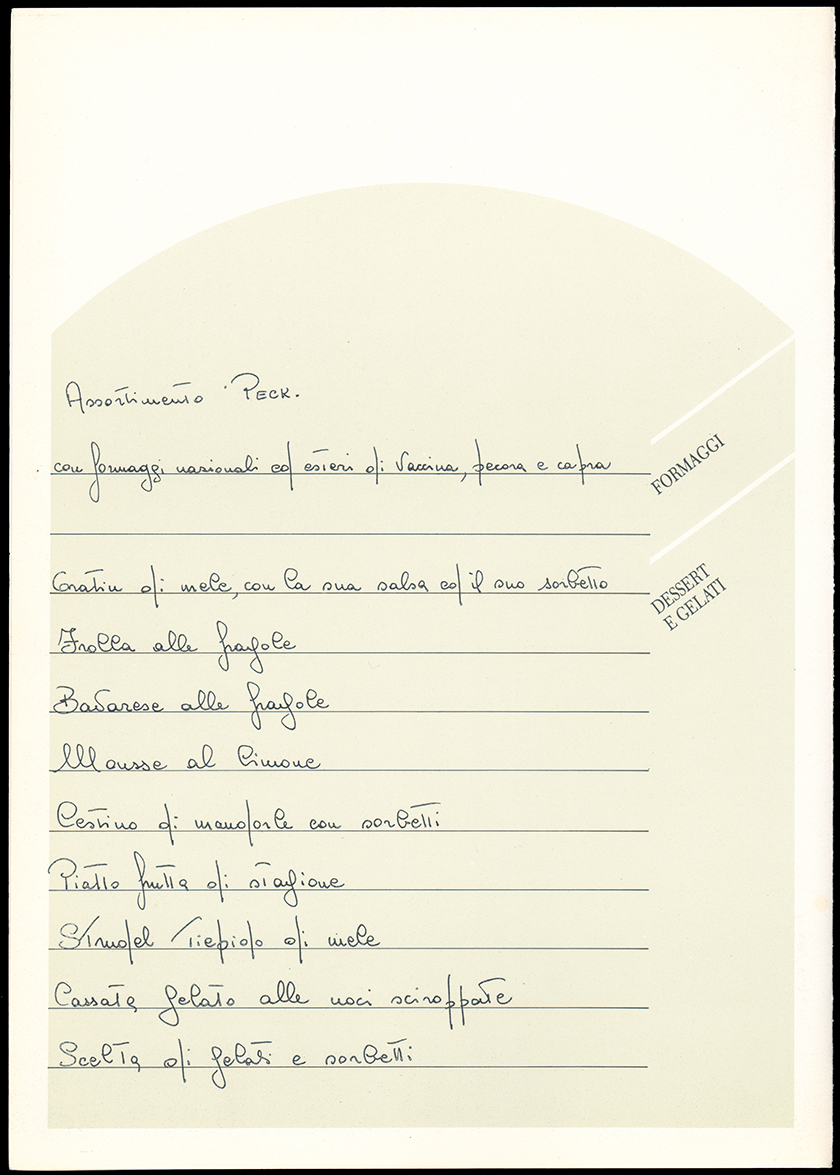 Assortimento PECK.
con formaggi nazionali ed esteri di vaccina, pecora e capra
FORMAGGI
Gratin di mele, con la sua salsa ed il suo sorbetto
DESSERT
E GELATI
Frolla alle fragole
Bavarese alle fragole
Mousse al limone
Cestino di mandorle con sorbetti
Piatto frutta di stagione
Strudel tiepido di mele
Cassata gelato alle noci sciroppate
Scelta di gelati e sorbetti